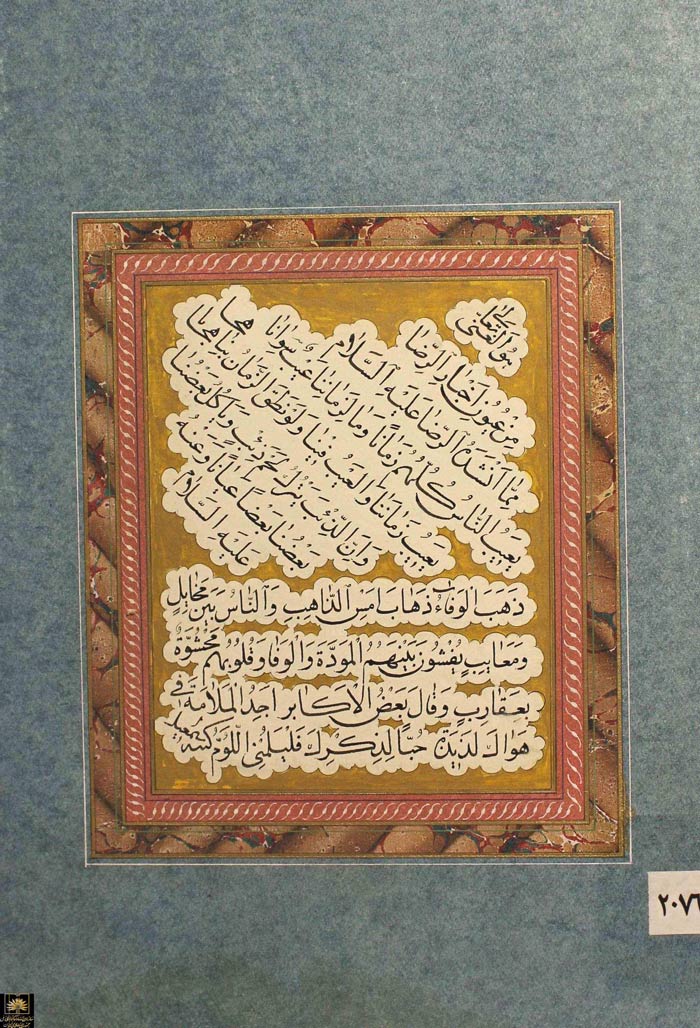 هو الغنی تعالی
من عیون اخبار الرضا
مما انشده الرضا علیه السلام
یعیب الناس کلهم زمانا وما لزماننا عیب سوانا
نعیب زماننا والعیب فینا ولو نطق الزمان بنا هجانا
وان الذئب یترک لحم ذئب ویأکل بعضنا
بعضا عیانا وعنه
علیه السلام
ذَهَبَ الوفاءُ ذهابَ امسِ الذاهِبِ والناسُ بین مخایلٍ
ومعایبٍ یفشون بینهم المودة والوفا وقلوبهم محشوّة
بعقاربٍ وقال بعض الاکابر اجد الملامة فی
هواک لذیذة حبّا لذکرک فلیلمنی اللوّم کتبه
۲۰۷۶